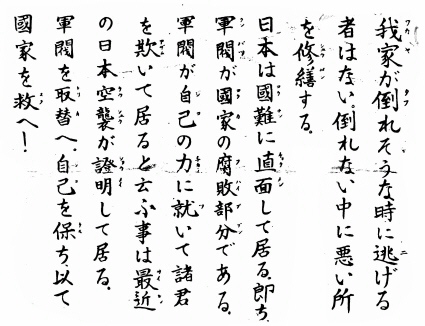 我家が倒れそうな時に逃げる
者はない。倒れない中に悪い所
を修繕する。
日本は國難に直面して居る。即ち、
軍閥が國家の腐敗部分である。
軍閥が自己の力に就いて諸君
を欺いて居ると云ふ事は最近
の日本空襲が證明して居る。
軍閥を取替へ、自己を保ち、以て
國家を救へ！